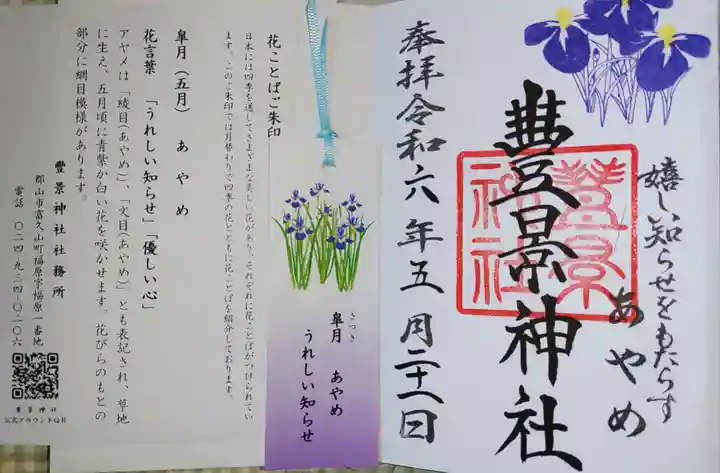 嬉し知らせをもたらす
あやめ
豊景神社
豊景
神社
奉拝令和六年五月二十一日
皐月 あやめ
さつき
うれしい知らせ
花ことばご朱印
日本には四季を通してさまざまな美しい花があり、それぞれに花ことばがつけられてい
ます。このご朱印では月替わりで四季の花とともに花ことばを紹介しております。
皐月(五月) あやめ
花言葉 「うれしい知らせ」「優しい心」
アヤメは「綾目(あやめ)」、「文目(あやめ)」とも表記され、草地
に生え、五月頃に青紫か白い花を咲かせます。花びらのもとの
部分に網目模様があります。
豊景神社社務所
郡山市富久山町福原字福原一番地
電話 〇二四-九二四-〇二〇六
豊景神社
公式アカウントQR